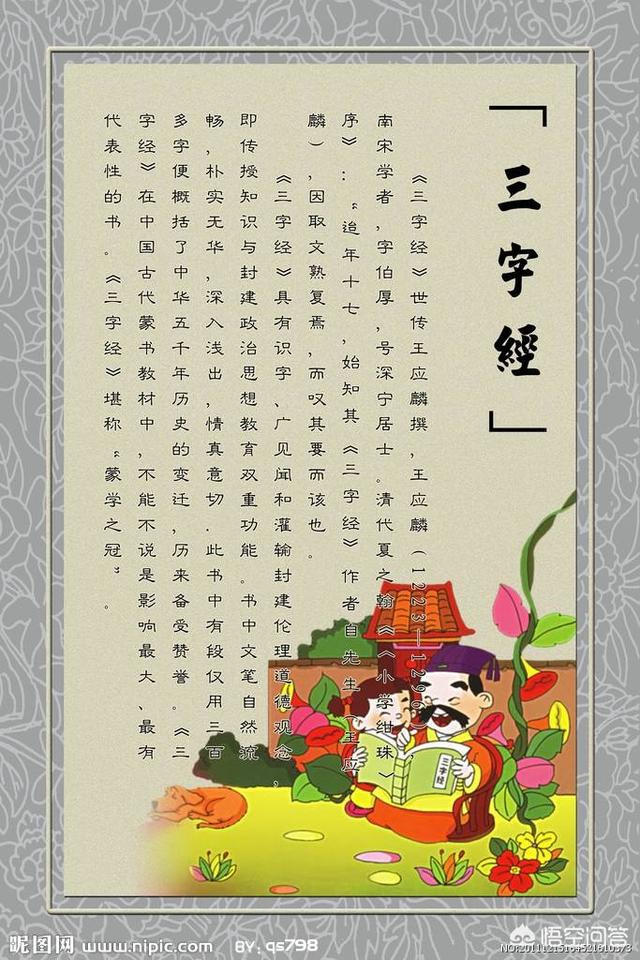 「三字經」
《三字经》世传王应麟撰,王应麟(1223—1296),
南宋学者,字伯厚,号深宁居士。清代夏之翰《《小学绀珠》
序》:“迨年十七,始知其《三字经》作者自先生(王应
麟),因取文熟复焉,而叹其要而该也。
《三字经》具有识字、广见闻和灌输封建伦理道德观念,
即传授知识与封建政治思想教育双重功能。书中文笔自然流
畅,朴实无华,深入浅出,情真意切.此书中有段仅用三百
多字便概括了中华五千年历史的变迁,历来备受赞誉。《三
字经》在中国古代蒙书教材中,不能不说是影响最大、最有
代表性的书。《三字经》堪称“蒙学之冠”。
三字经
昵图网 www.nipic.com BY: qs798
悟空问答